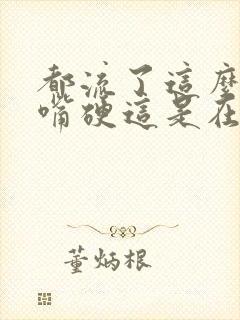 都流了這麼
嘴硬這是在
董炳根